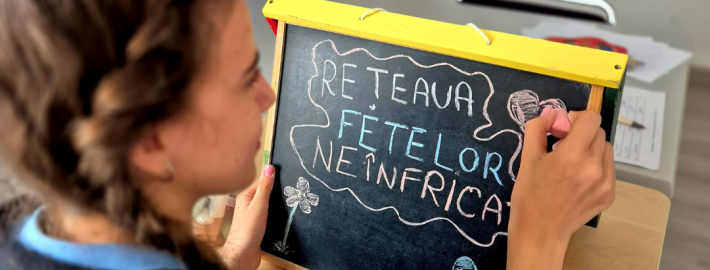 REȚEAUA
FETELOR
NEÎNFRICA